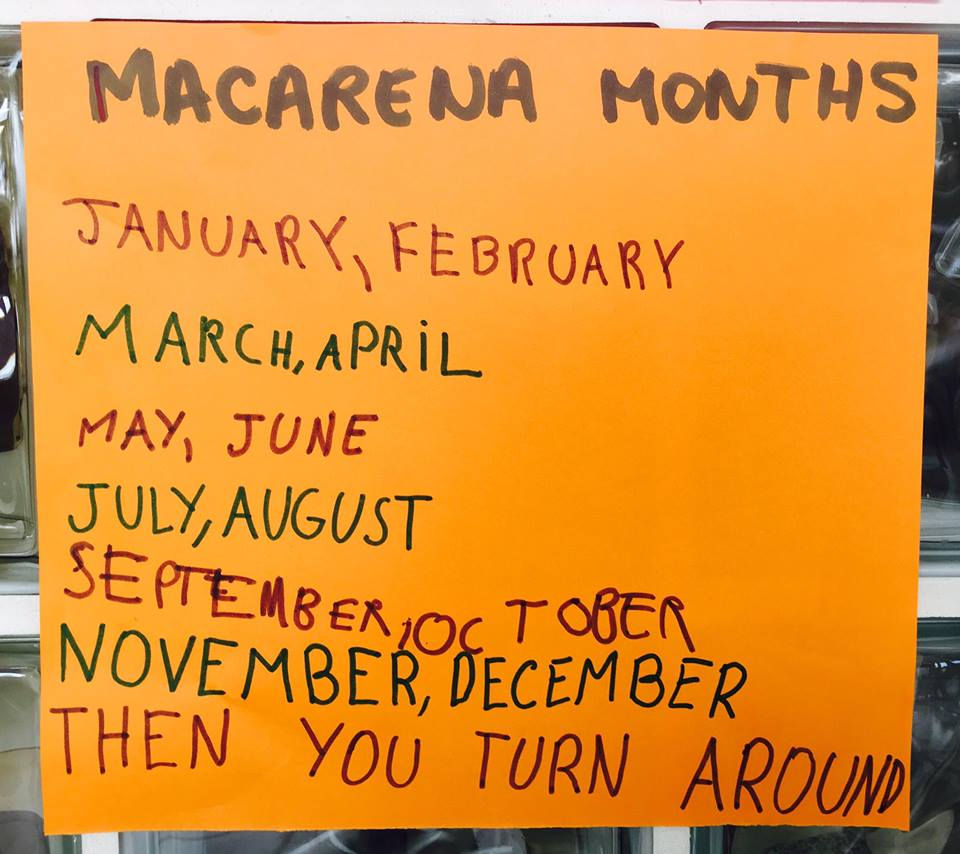 MACARENA MONTHS
JANUARY, FEBRUARY
MARCH, APRIL
MAY, JUNE
JULY, AUGUST
SEPTEMBER, OCTOBER
NOVEMBER, DECEMBER
THEN YOU TURN AROUND